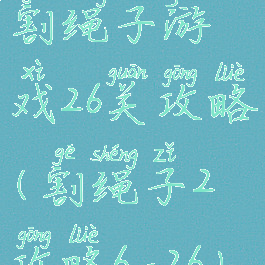 割绳子游
xì guān gōng lüè
戏26关攻略
gē shéng zǐ
(割绳子2
gōng lüè
攻略6-26)